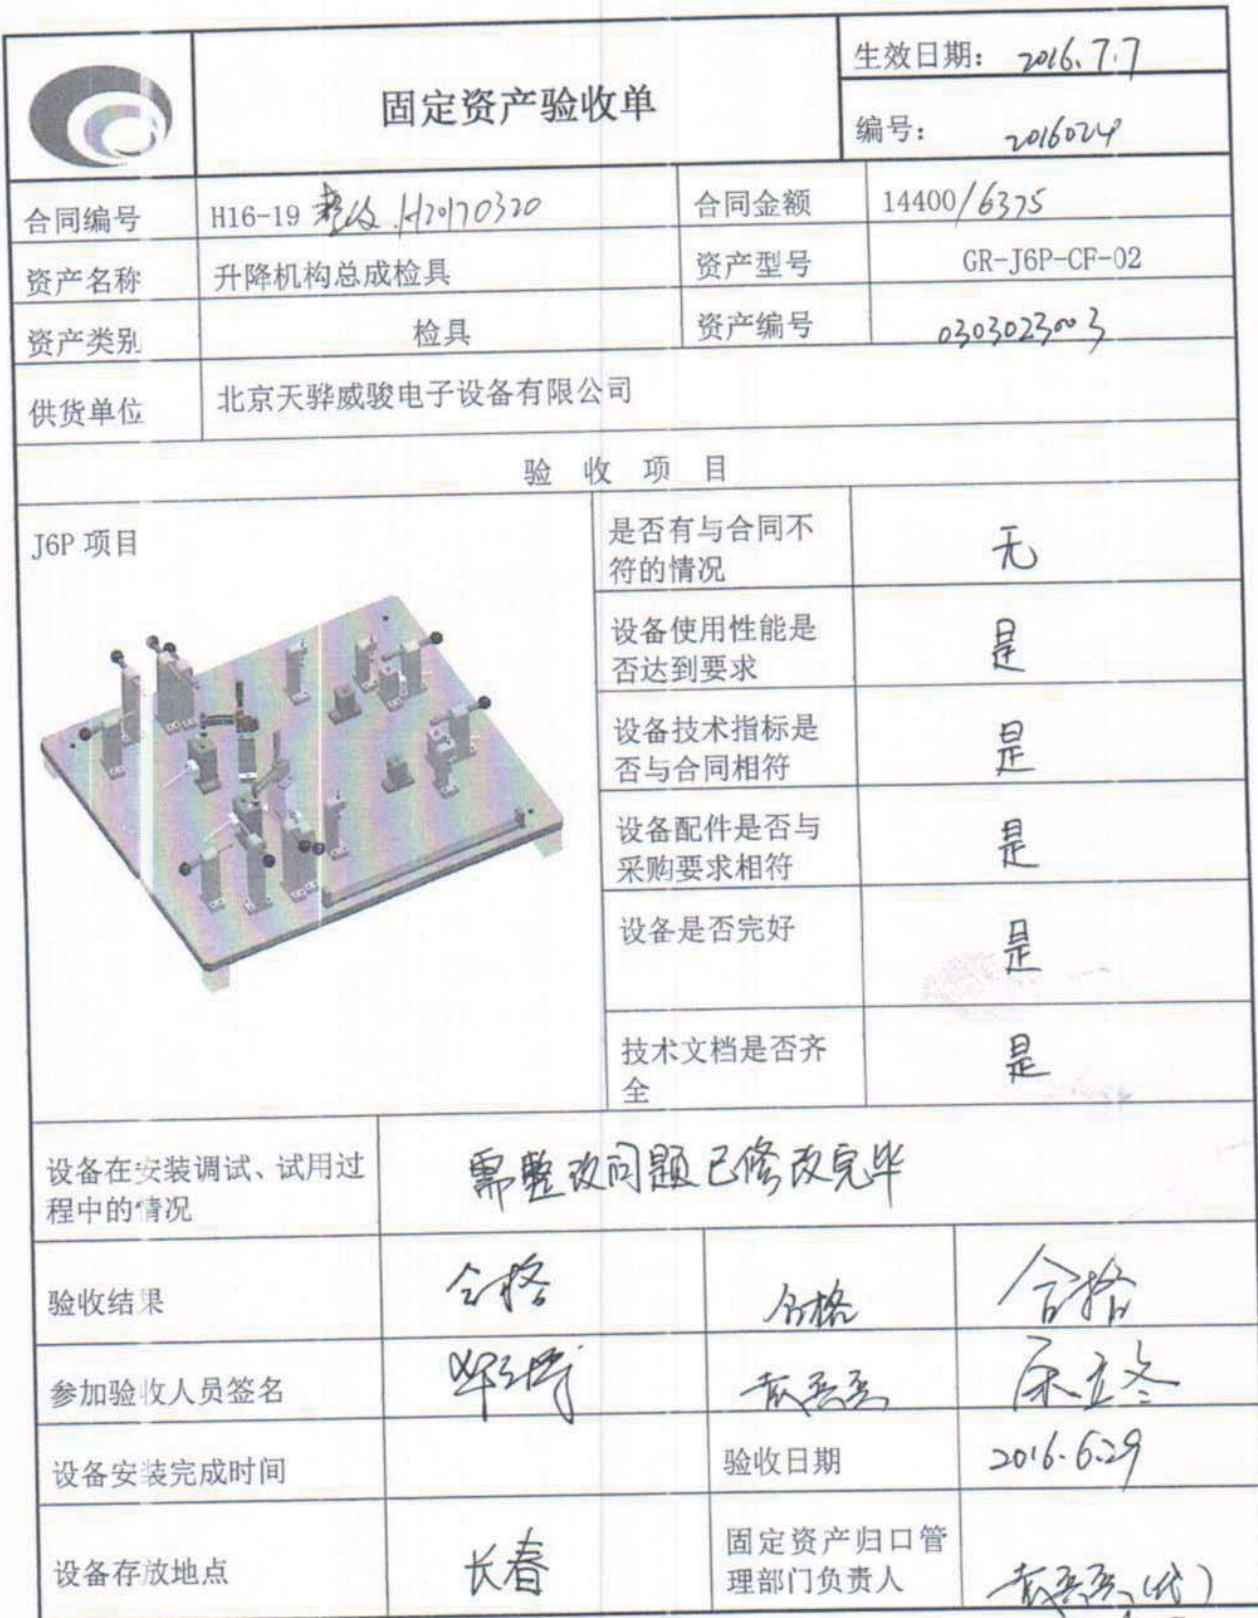 固定资产验收单
生效日期： 2016.7.7
编号： 2016024
合同编号 H16-19 H20170320 合同金额 14400/6375
资产名称 升降机构总成检具 资产型号 GR-J6P-CF-02
资产类别 检具 资产编号 0303023003
供货单位 北京天骅威骏电子设备有限公司
验 收 项 目
J6P 项目
是否有与合同不
符的情况 无
设备使用性能是
否达到要求 是
设备技术指标是
否与合同相符 是
设备配件是否与
采购要求相符 是
设备是否完好 是
技术文档是否齐
全 是
设备在安装调试、试用过
程中的情况 需整改问题已修改完毕
验收结果 合格 合格 合格
参加验收人员签名
设备安装完成时间 验收日期 2016.6.29
设备存放地点 长春 固定资产归口管
理部门负责人 (代)